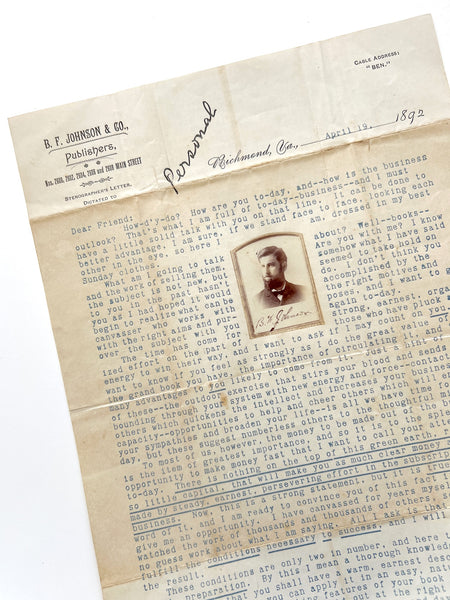 CABLE ADDRESS:
"BEN."
B. F. JOHNSON & CO.,
Publishers,
MAIN STREET
STENOGRAPHER'S LETTER.
DICTATED TO
Personal
Richmond, Va., April 19, 1892
Dear Friend: How-d'y-do? How are you to-day, and--how is the business
outlook? That's what I am full of to-day--business--and I must
have a little solid talk with you on that line. It can be done to
better advantage, I am sure, if we are face to face, looking each
other in the eye, so here I am, dressed in my best
Sunday clothes.
What am I going to talk about? Well--books--
and the work of selling them. Are you with me? I know
the subject is not new, but somehow what I have said
to you in the past hasn't seemed to take hold on
you as I hoped it would. I don't think you
begin to realize what can be accomplished by the
canvasser who works with the right motives and
with right aims and purposes, and I want to go
over the subject for again to-day.
The time has come for strong, earnest, organ-
ized effort on the part of those who have pluck and
energy to win their way, and I may count on you. I
want to know if you feel as strongly as I do the great value of
the grand book you have, the importance of circulating it, and the
many advantages you are likely to come from it. Just a hint at some
of these--the outdoor exercise that stirs your blood and sends it
bounding through your system with new energy and life--contact with
others which quickens the intellect and increases your business
capacity--opportunities to help and cheer others which time
your sympathies and broaden your life--is all we have time
day, but these suggest numberless others to the thoughtful mind.
To most of us, however, the money to be made on the sple
is the item of greatest importance, and so it is to the
opportunity to make money fast that I want to call your
to-day. There is nothing on the top of this green earth, r
so little capital, that will make you as much clear money
made by steady, earnest, persevering effort in the subscrip
business. Now, this is a strong statement, but it is true
word of it, and I am ready to convince you of this fact if
give me an opportunity. I have canvassed for years myself
watched the work of thousands and thousands of others, s
no guess work about what I am saying. All I ask is that
fulfill the conditions necessary to success, and I will
the result.
These conditions are only two in number, and here
preparation. By this I mean a thorough knowledge
that you shall have a warm, earnest desc
of putting it in an easy, nat
features of your book
out at the right
B. F. Johnson.